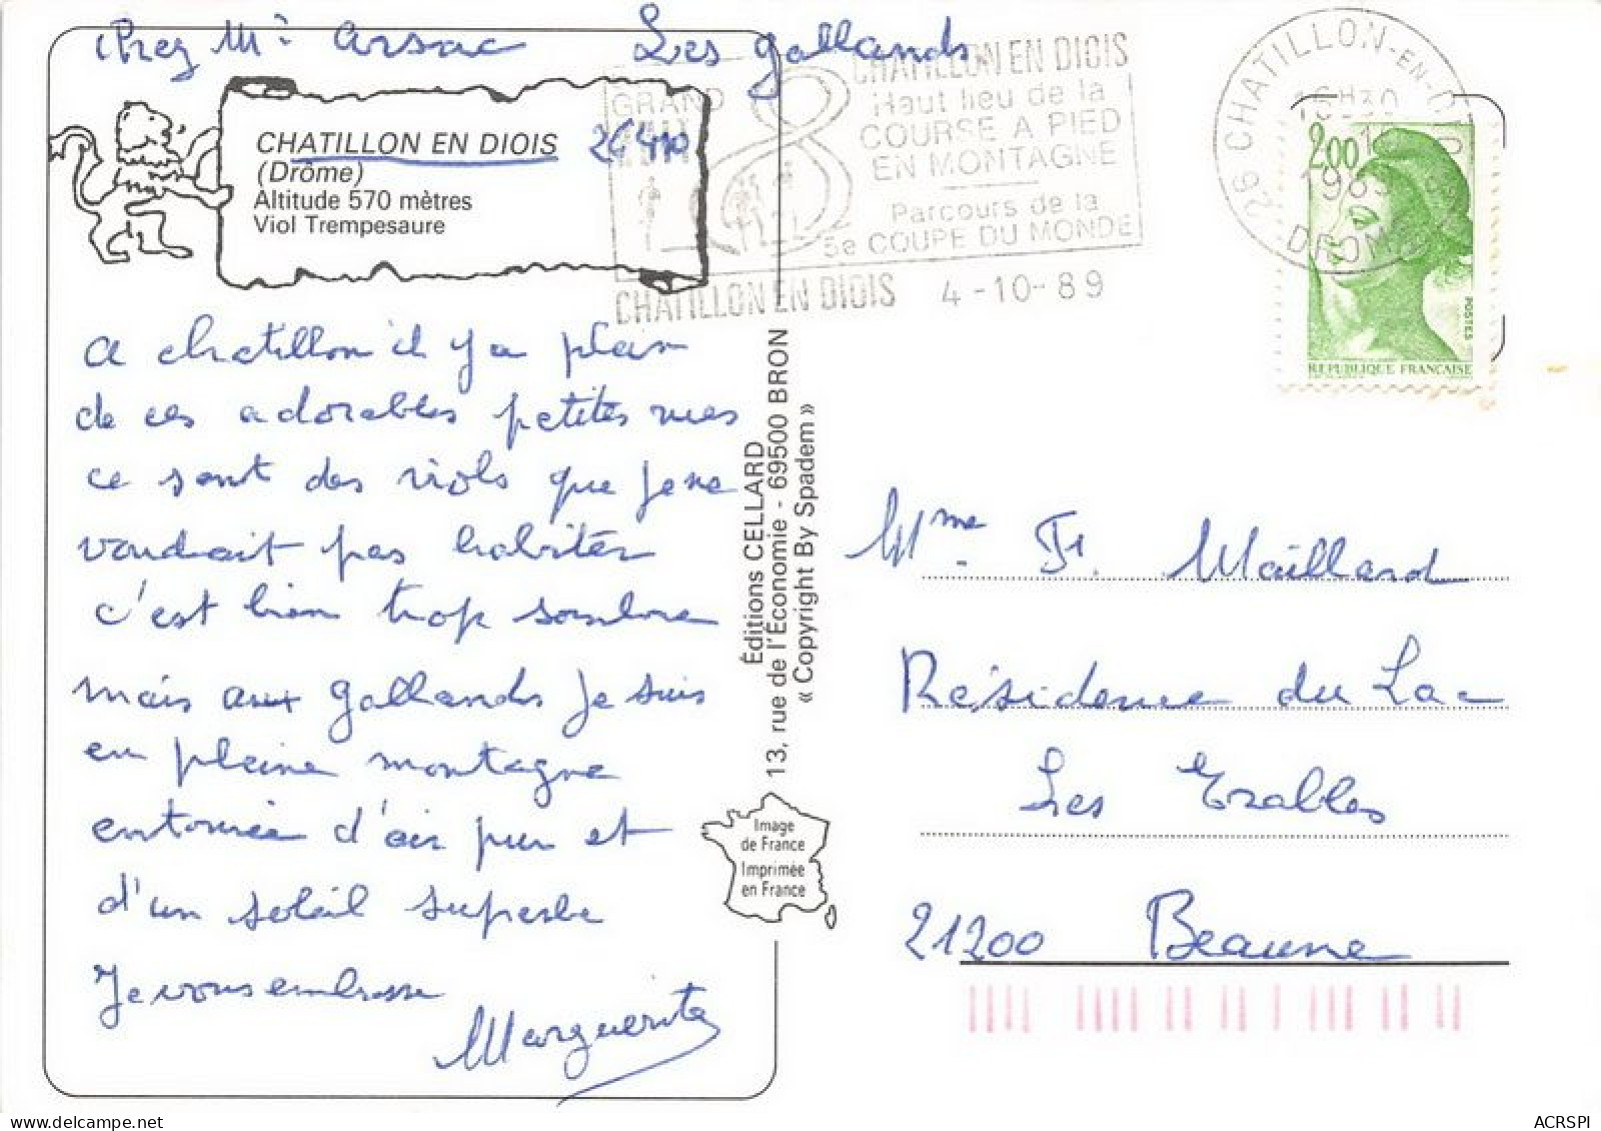 chez Mr Arsac Les gallands
CHATILLON EN DIOIS 26410
(Drôme)
Altitude 570 mètres
Viol Trempesaure
GRAND
CHATILLON EN DIOIS
Haut lieu de la
COURSE A PIED
EN MONTAGNE
Parcours de la
5e COUPE DU MONDE
CHATILLON EN DIOIS 4-10-89
26 CHATILLON-EN-DIOIS
16H30
1989
DROME
2,00
POSTES
REPUBLIQUE FRANÇAISE
A chatillon il y a plein
de ces adorables petites rues
ce sont des viols que je ne
voudrait pas habiter
c'est bien trop sombre
mais aux gallands je suis
en pleine montagne
entourée d'air pur et
d'un soleil superbe
Je vous embrasse
Marguerite
Éditions CELLARD
13, rue de l'Économie - 69500 BRON
« Copyright By Spadem »
Image
de France
Imprimée
en France
Mme Fr. Maillard
Résidence du Lac
Les Erables
21200 Beaune
ACRSPI